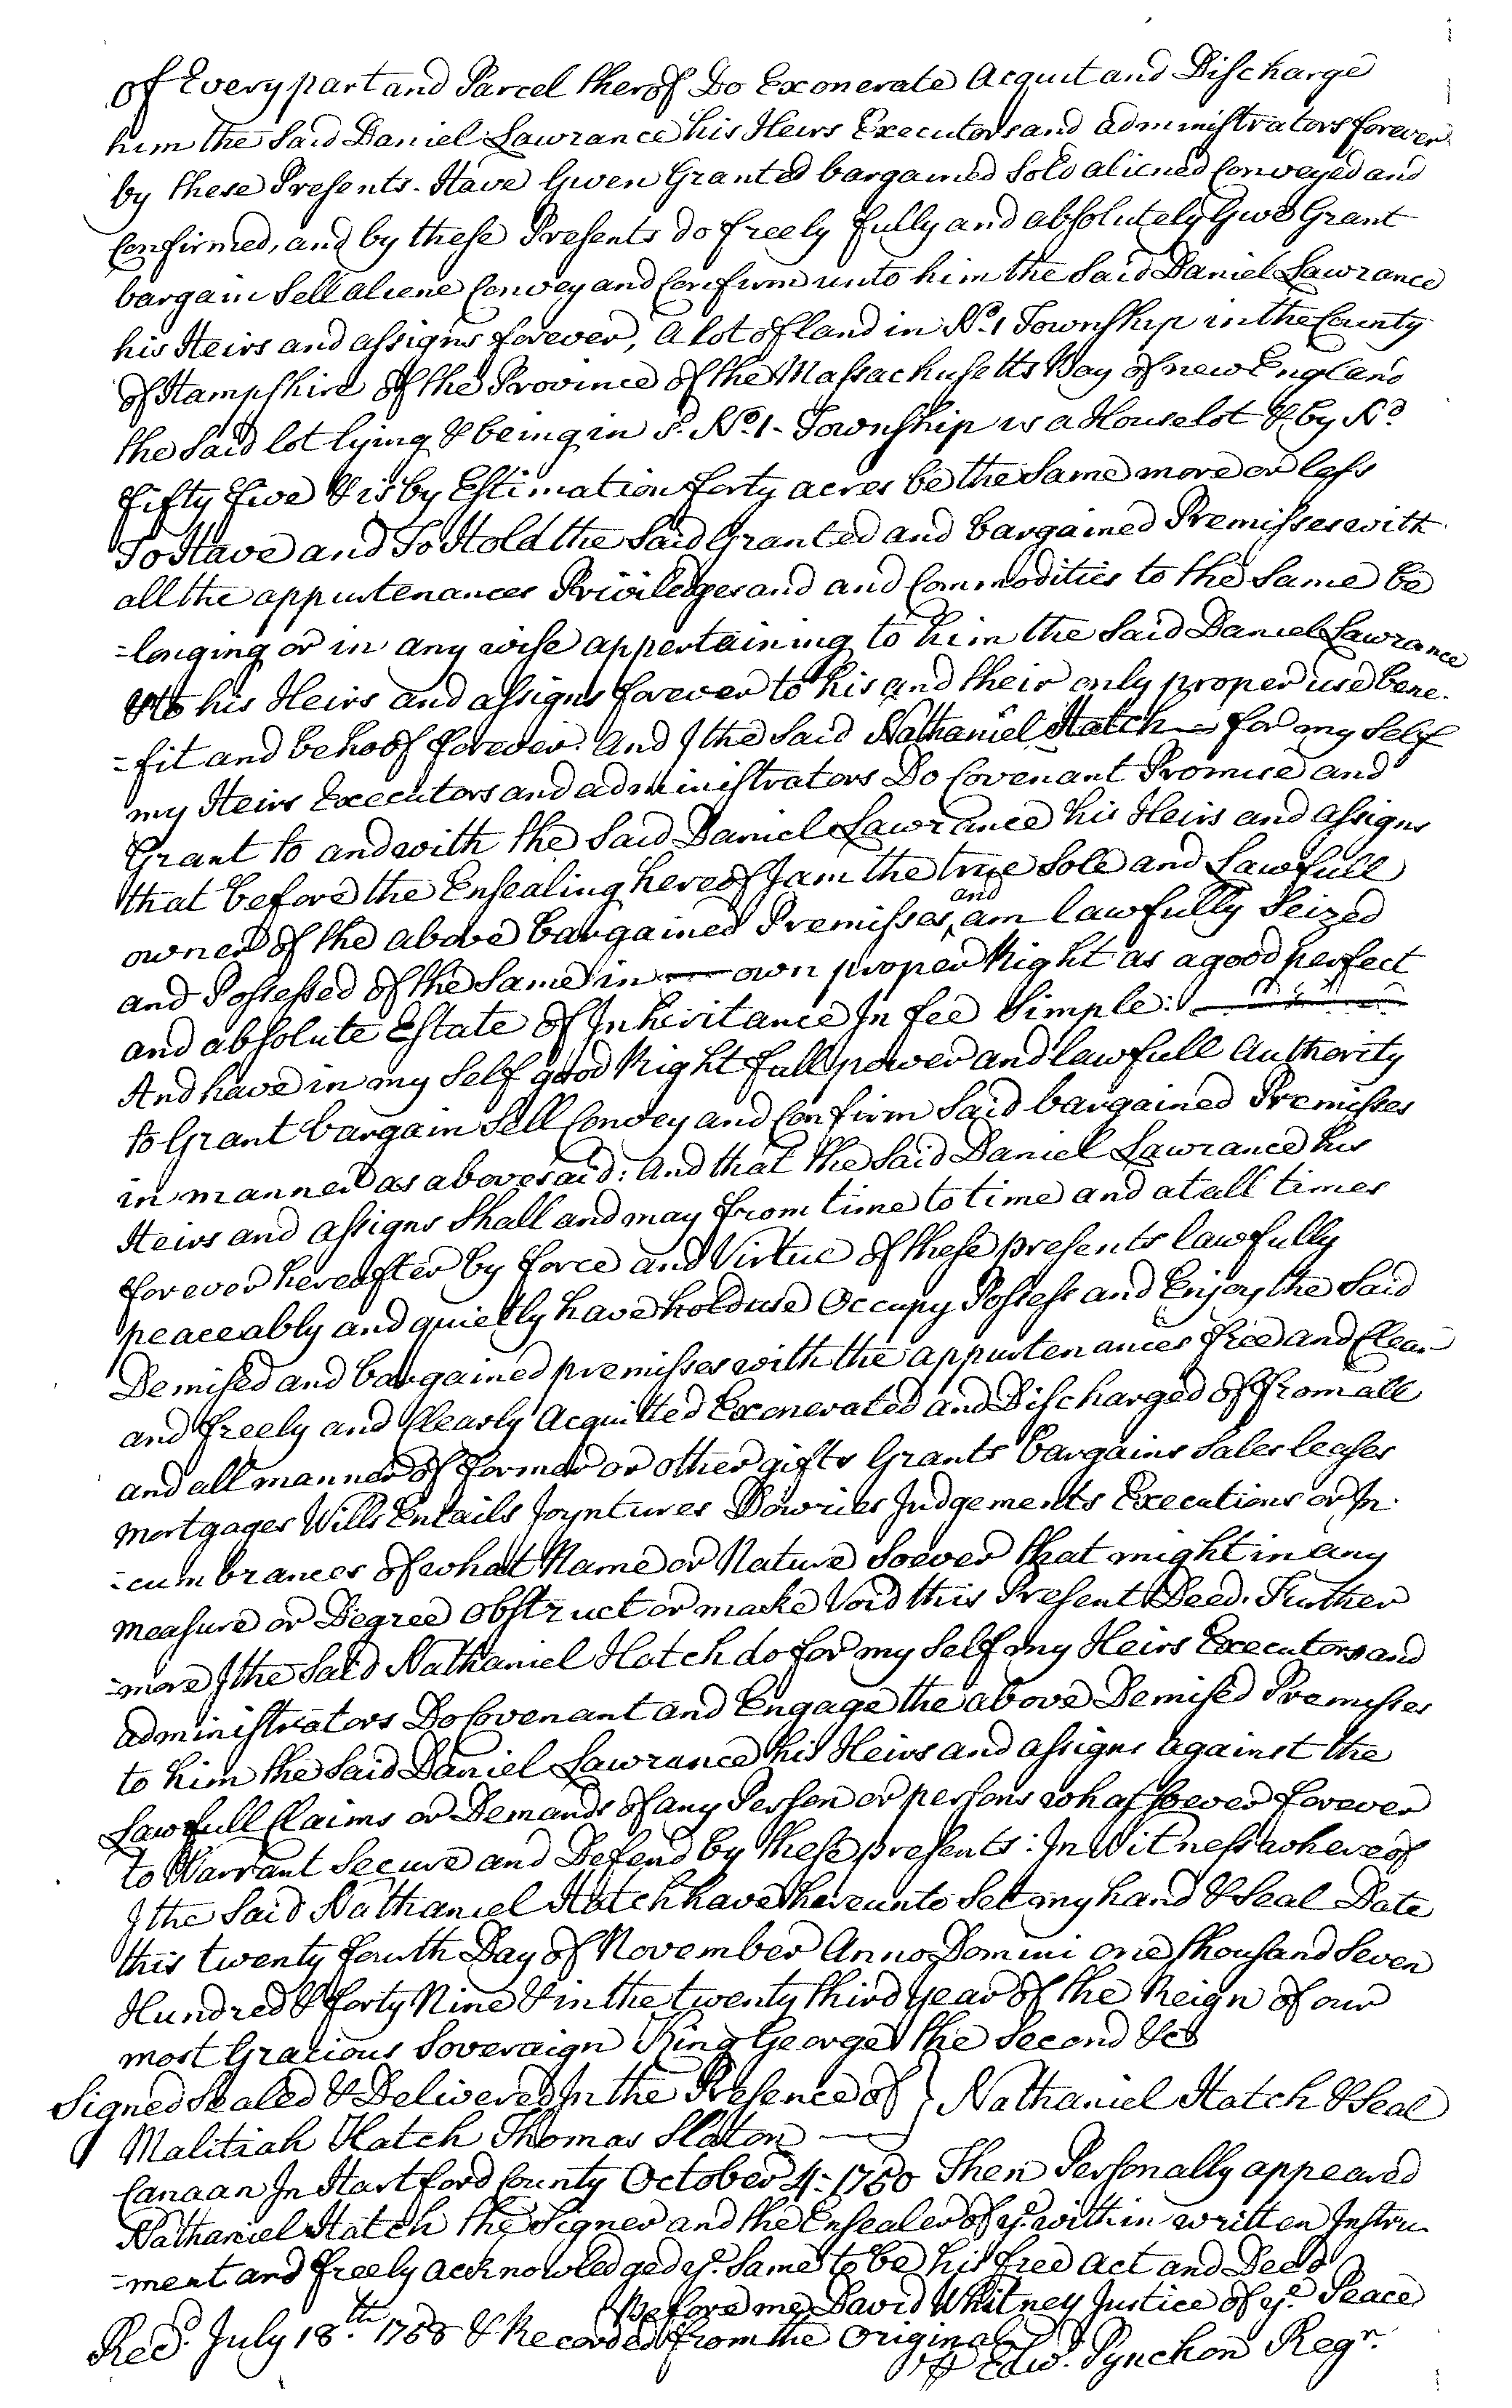 of Every part and Parcel therof Do Exonerate Acquit and Discharge
him the Said Daniel Lawrance his Heirs Executors and administrators forever
by these Presents. Have Given Granted bargained Sold aliened Conveyed and
Confirmed, and by these Presents do freely fully and absolutely Give Grant
bargain Sell aliene Convey and Confirm unto him the Said Daniel Lawrance
his Heirs and assigns forever, a lot of land in No. 1 Township in the County
of Hampshire of the Province of the Massachusetts Bay of new England
the Said lot lying & being in sd. No. 1 - Township is a House lot & by No
fifty five & is by Estimation forty acres be the Same more or less
To Have and To Hold the Said Granted and bargained Premisses with
all the appurtenances Priviledges and and Commodities to the Same be
=longing or in any wise appertaining to him the Said Daniel Lawrance
& to his Heirs and assigns forever to his and their only proper use bene-
=fit and behoof forever. And I the Said Nathaniel Hatch for my Self
my Heirs Executors and administrators Do Covenant Promise and
Grant to and with the Said Daniel Lawrance his Heirs and assigns
that before the Ensealing hereof I am the true Sole and Lawfull
owner of the above bargained Premisses and am lawfully Seized
and Possessed of the Same in own proper Right as a good perfect
and absolute Estate of Inheritance In fee Simple:
And have in my Self good Right full power and lawfull Authority
to Grant bargain Sell Convey and Confirm Said bargained Premisses
in manner as abovesaid: And that the Said Daniel Lawrance his
Heirs and assigns Shall and may from time to time and at all times
forever hereafter by force and Virtue of these presents lawfully
peaceably and quietly have hold use Occupy Possess and Enjoy the Said
Demised and bargained premisses with the appurtenances free and Clear
and freely and Clearly Acquitted Exonerated and Discharged of from all
and all manner of former or other gifts Grants bargains Sales leases
mortgages Wills Entails Joyntures Dowries Judgements Executions or In-
=cumbrances of what Name or Nature Soever that might in any
measure or Degree obstruct or make Void this Present Deed. Further
=more I the Said Nathaniel Hatch do for my Self my Heirs Executors and
administrators Do Covenant and Engage the above Demised Premisses
to him the Said Daniel Lawrance his Heirs and assigns against the
Lawfull Claims or Demands of any Person or persons whatsoever forever
to Warrant Secure and Defend by these presents: In Witness whereof
I the Said Nathaniel Hatch have hereunto Set my hand & Seal Date
this twenty fourth Day of November Anno Domini one thousand Seven
Hundred & forty Nine & in the twenty third year of the Reign of our
most Gracious Soveraign King George the Second &c
Signed Sealed & Delivered In the Presence of } Nathaniel Hatch & Seal
Malitiah Hatch Thomas Slaton
Canaan In Hartford County October 4: 1750 Then Personally appeared
Nathaniel Hatch the Signer and the Ensealer of ye. within written Instru-
=ment and freely acknowledged ye. Same to be his free act and Deed
Before me David Whitney Justice of ye. Peace
Recd. July 18th. 1758 & Recorded from the Original
℔ Edwd. Pynchon Regr.